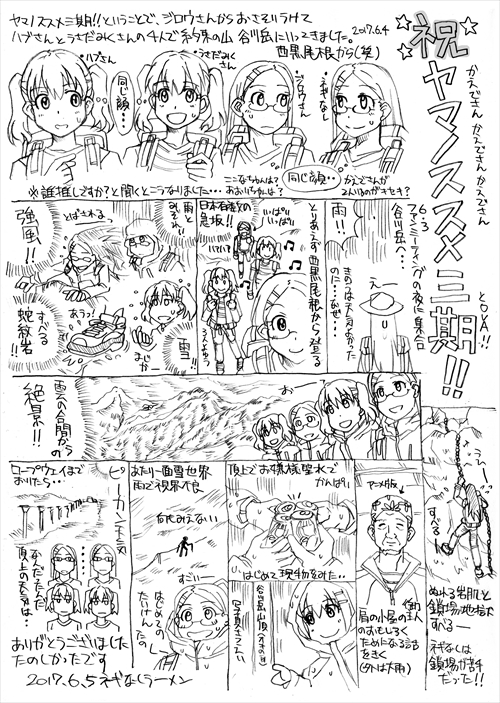 祝
ヤマノススメ三期!!
とOVA!!
かえでさん かえでさん かえでさん
ヤマノススメ三期!!ということで、ジロウさんからおさそいうけて
ハブさんとうさだみくさんの4人で約束の山 谷川岳にいってきました。2017.6.4
西黒尾根から(笑)
ハブさん
同じ顔‥
うさだみくさん
ジロウさん
ネギなし
同じ顔‥
ここなちゃんは?
あおいちゃんは?
かえでさんが
2人いるのがステキ?
※誰推しですか?と聞くとこうなりました‥‥
6.3
ファンミーティングの夜に集合
谷川岳へ‥
えー
雨!!
きのうは天気よかった
のに‥なぜ‥‥
とりあえず西黒尾根から登る
いっぱいっぱい
日本有数の
急坂!!
ハアハア
よゆう
雨と
みぞれ
雪!
強風!!
とばされる
あうっ
すべる
蛇紋岩
まじかー
おー
雲の合間から
絶景!!
すべる
ぬれる岩肌と
鎖場が地味に
すべるー
ネギなしは
鎖場が苦手
だった!!
アニメ版
肩の小屋の主人
のおもしろく
ためになる話
をきく
(外は大雨)
頂上でお横様登水で
かんぱい
はじめて現物をみた‥
谷川岳山頂
あたり一面雪世界
雨で視界不良
何もみえない
すごい
はじめての
たいけん
たのしー
ピーカン天気
ロープウェイまで
おりたら‥
なんだったんだ
頂上の天気は‥
ありがとうございました
たのしかったです
2017.6.5 ネギなしラーメン